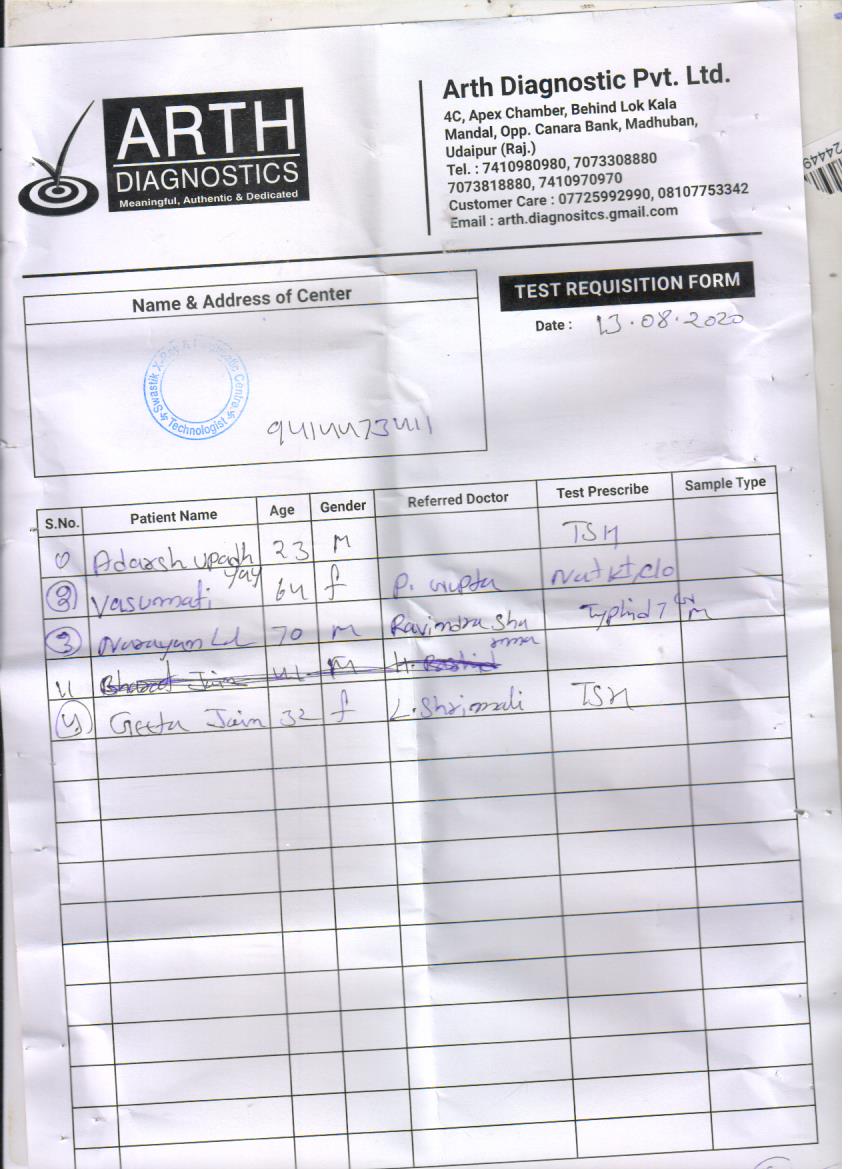 ARTH
DIAGNOSTICS
Meaningful, Authentic & Dedicated
Arth Diagnostic Pvt. Ltd.
4C, Apex Chamber, Behind Lok Kala
Mandal, Opp. Canara Bank, Madhuban,
Udaipur (Raj.)
Tel. : 7410980980, 7073308880
7073818880, 7410970970
Customer Care : 07725992990, 08107753342
Email : arth.diagnositcs.gmail.com
24449
Name & Address of Center
TEST REQUISITION FORM
Date : 13.08.2020
Swastik X-Ray & Centre
Technologist
9414473411
S.No. Patient Name Age Gender Referred Doctor Test Prescribe Sample Type
Adarsh Upadh 23 M TSH
yay
2 Vasumati 64 f P. Gupta Na+ K+
3 Narayan Lal 70 M Ravindra Sha M
rma
4 Jain M
4 Geeta Jain 32 f L. Shrimali TSH